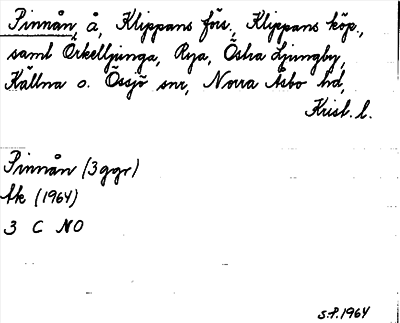 Pinnån, å, Klippans förs., Klippans köp.,
saml Örkelljunga, Rya, Östra Ljungby,
Källna o. Össjö snr, Norra Åsbo hd,
Krist. l.
Pinnån (3 ggr)
Ek (1964)
3 C NO
S.P. 1964